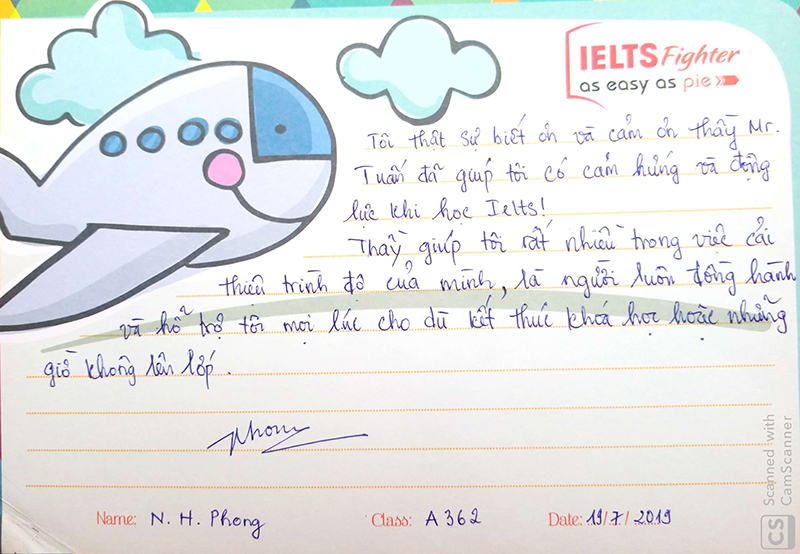 IELTS Fighter
as easy as pie
Tôi thật sự biết ơn và cảm ơn thầy Mr.
Tuấn đã giúp tôi có cảm hứng và động
lực khi học Ielts!
Thầy giúp tôi rất nhiều trong việc cải
thiện trình độ của mình, là người luôn đồng hành
và hỗ trợ tôi mọi lúc cho dù kết thúc khoá học hoặc những
giờ không lên lớp.
Phong
Name: N. H. Phong Class: A362 Date: 19/7/2019
CS Scanned with
CamScanner